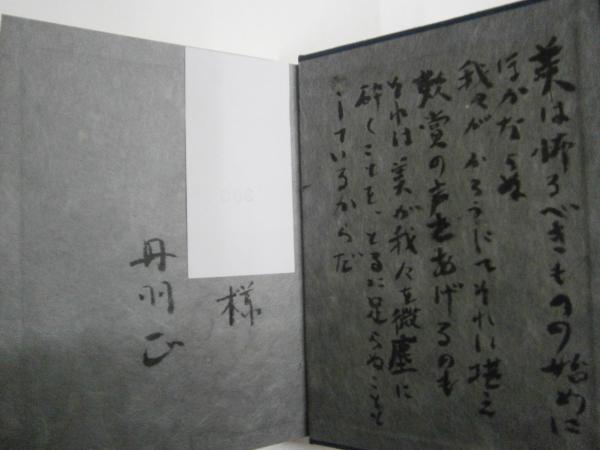 美は怖るべきものの始めに
ほかならぬ
我々がかろうじてそれに堪え
歎賞の声をあげるのも
それは美が我々を微塵に
砕くことを、とるに足らぬことと
しているからだ
様
丹羽正